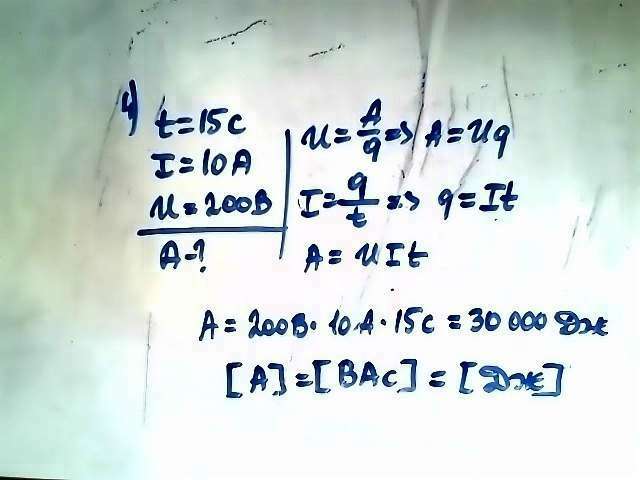 4) t=15c
I=10A
U=200B
A-?
U=A/q => A=Uq
I=q/t => q=It
A=UIt
A=200B·10A·15c=30 000 Дж
[A]=[BAc]=[Дж]